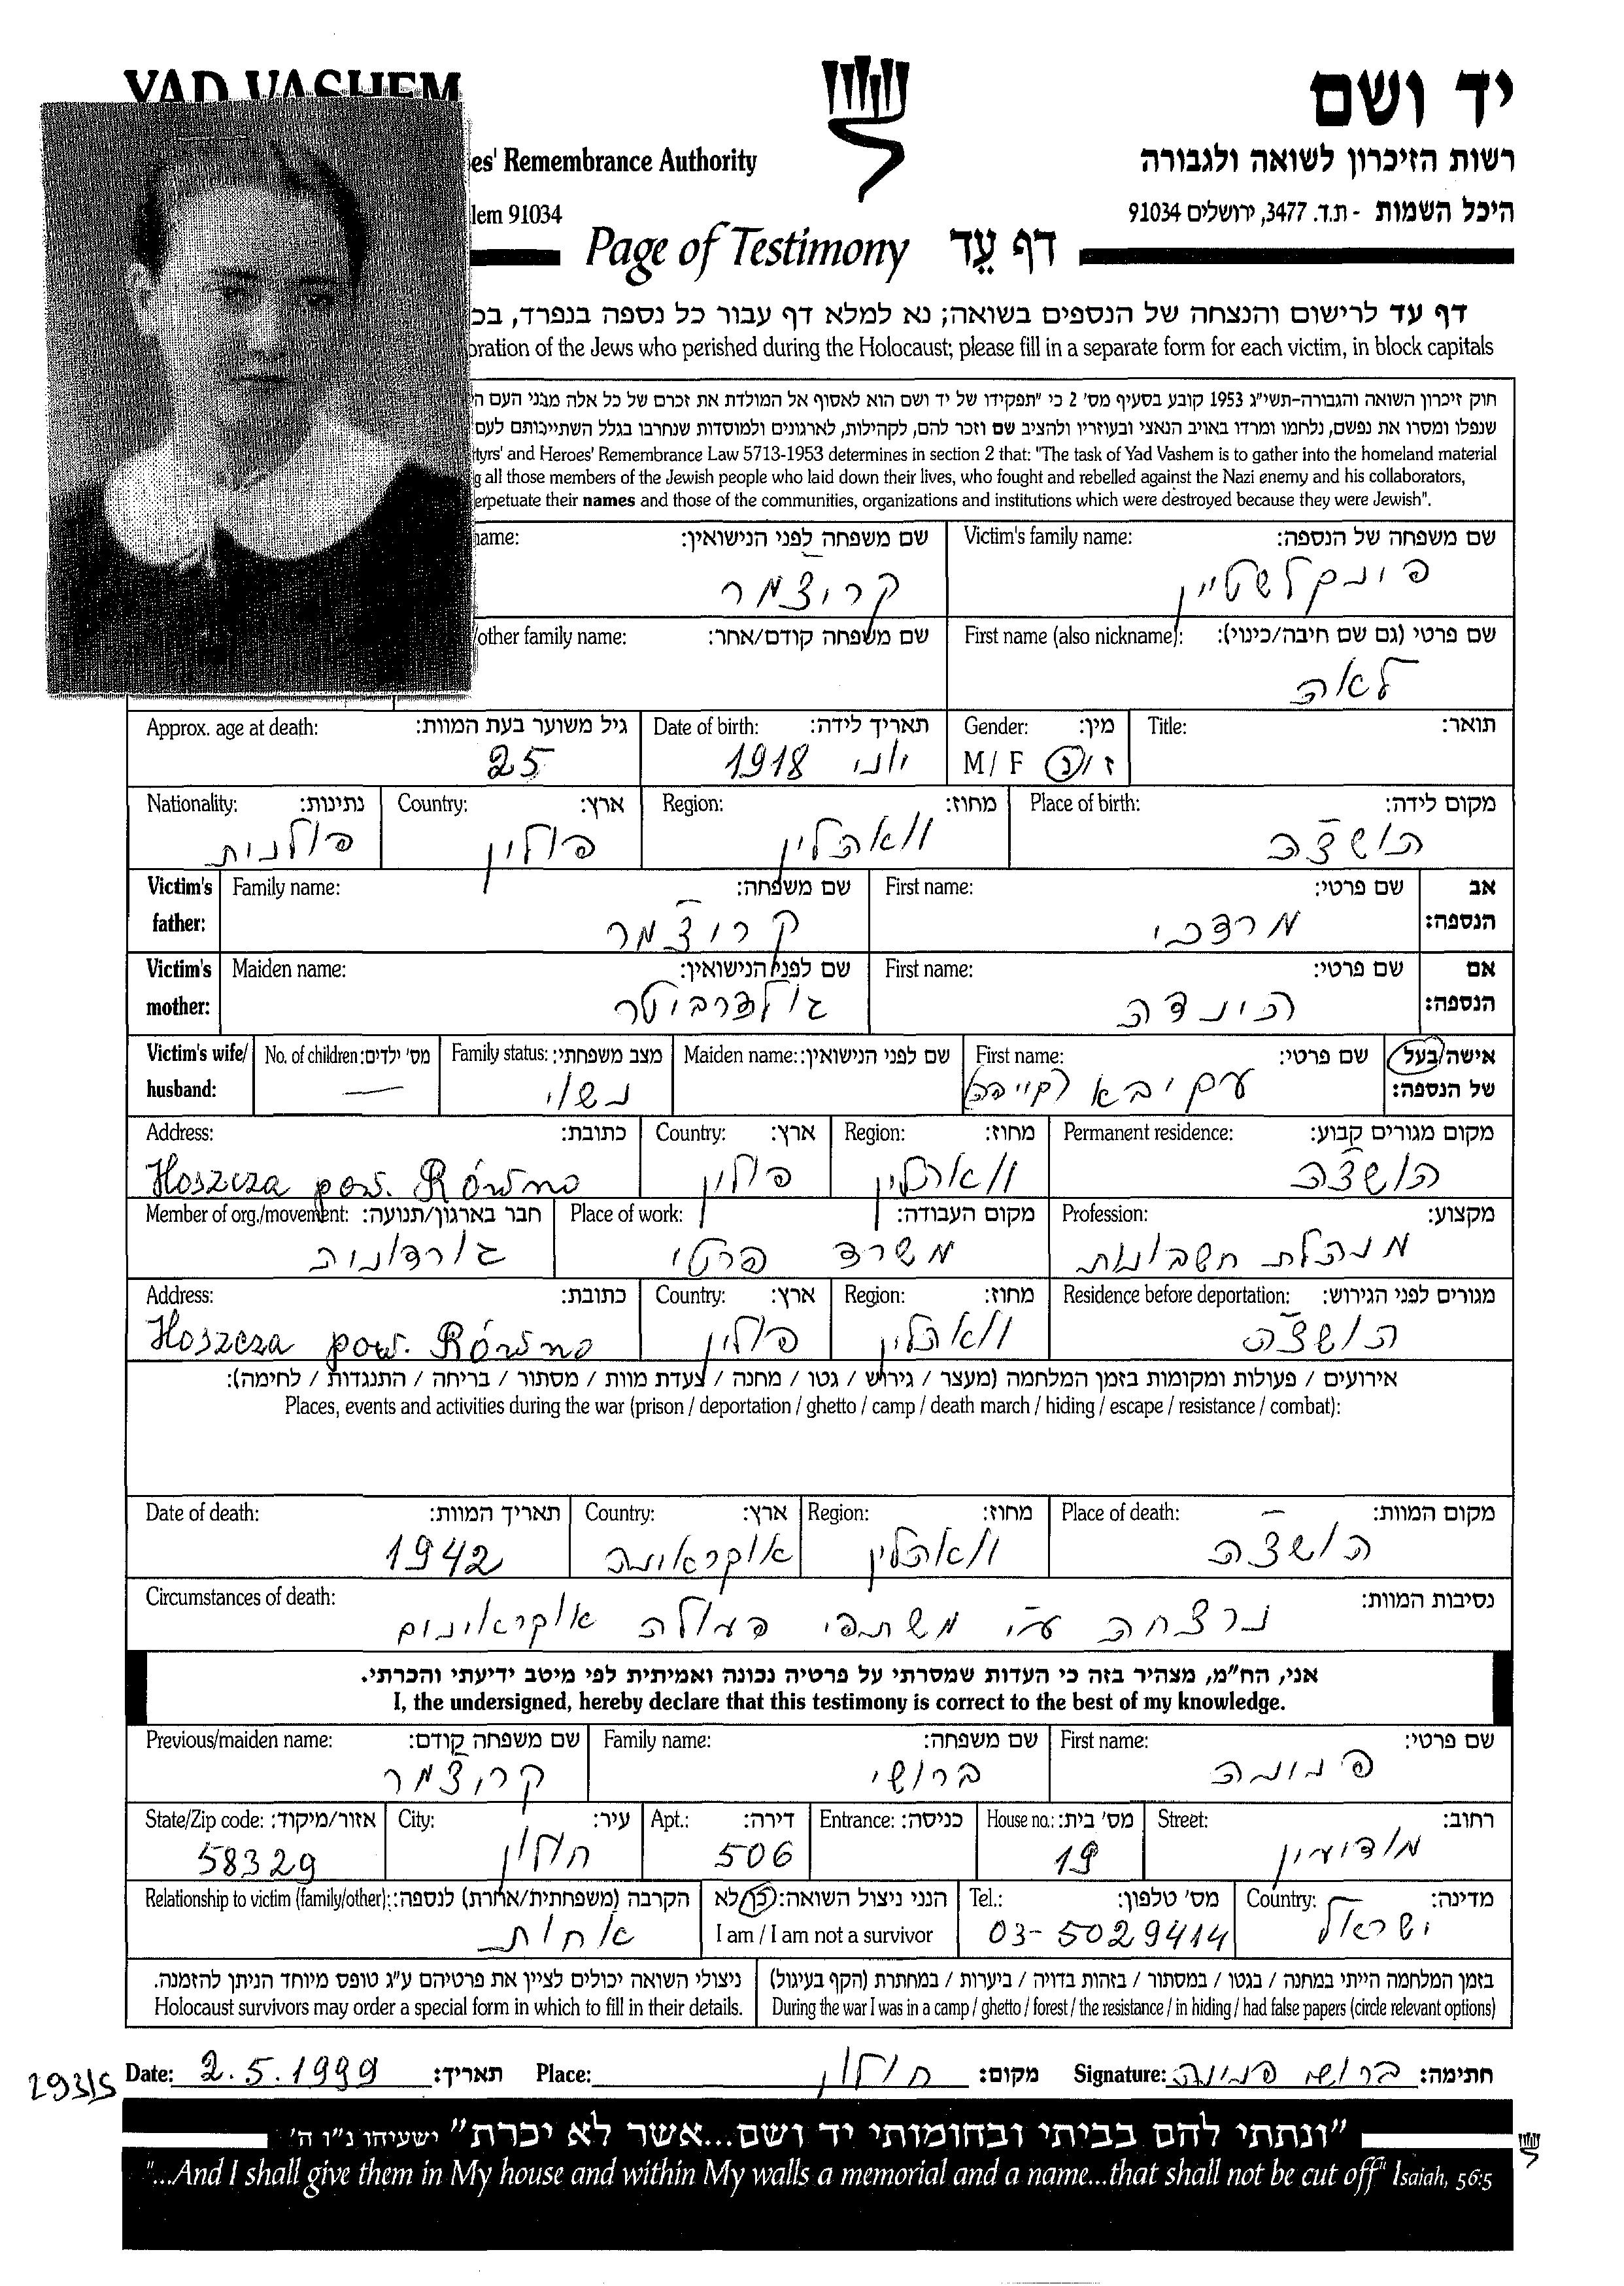 YAD VASHEM
יד ושם
es' Remembrance Authority
רשות הזיכרון לשואה ולגבורה
lem 91034
היכל השמות - ת.ד. 3477, ירושלים 91034
Page of Testimony דף עֵד
דף עד לרישום והנצחה של הנספים בשואה; נא למלא דף עבור כל נספה בנפרד, בכ
oration of the Jews who perished during the Holocaust; please fill in a separate form for each victim, in block capitals
חוק זיכרון השואה והגבורה-תשי"ג 1953 קובע בסעיף מס' 2 כי "תפקידו של יד ושם הוא לאסוף אל המולדת את זכרם של כל אלה מבני העם הי
שנפלו ומסרו את נפשם, נלחמו ומרדו באויב הנאצי ובעוזריו ולהציב שם וזכר להם, לקהילות, לארגונים ולמוסדות שנחרבו בגלל השתייכותם לעם
tyrs' and Heroes' Remembrance Law 5713-1953 determines in section 2 that: "The task of Yad Vashem is to gather into the homeland material
g all those members of the Jewish people who laid down their lives, who fought and rebelled against the Nazi enemy and his collaborators,
erpetuate their names and those of the communities, organizations and institutions which were destroyed because they were Jewish".
Victim's family name: שם משפחה של הנספה:
פינקלשטיין
name: שם משפחה לפני הנישואין:
קרוצ'מר
First name (also nickname): שם פרטי (גם שם חיבה/כינוי):
לאה
/other family name: שם משפחה קודם/אחר:
Title: תואר:
Gender: מין:
M / F ז / נ
Date of birth: תאריך לידה:
יוני 1918
Approx. age at death: גיל משוער בעת המוות:
25
Place of birth: מקום לידה:
הושצ'ה
Region: מחוז:
וואהלין
Country: ארץ:
פולין
Nationality: נתינות:
פולנית
Victim's father: אב הנספה:
First name: שם פרטי:
מרדכי
Family name: שם משפחה:
קרוצ'מר
Victim's mother: אם הנספה:
First name: שם פרטי:
הינדה
Maiden name: שם לפני הנישואין:
גולפרביטר
Victim's wife/ husband: אישה/בעל של הנספה:
First name: שם פרטי:
עקיבא
Maiden name: שם לפני הנישואין:
Family status: מצב משפחתי:
נשוי
No. of children: מס' ילדים:
—
Permanent residence: מקום מגורים קבוע:
הושצ'ה
Region: מחוז:
וואהלין
Country: ארץ:
פולין
Address: כתובת:
Hoszcza pow. Równo
Profession: מקצוע:
מנהלת חשבונות
Place of work: מקום העבודה:
משרד פרטי
Member of org./movement: חבר בארגון/תנועה:
גורדונית
Residence before deportation: מגורים לפני הגירוש:
הושצ'ה
Region: מחוז:
וואהלין
Country: ארץ:
פולין
Address: כתובת:
Hoszcza pow. Równo
אירועים / פעולות ומקומות בזמן המלחמה (מעצר / גירוש / גטו / מחנה / צעדת מוות / מסתור / בריחה / התנגדות / לחימה):
Places, events and activities during the war (prison / deportation / ghetto / camp / death march / hiding / escape / resistance / combat):
Place of death: מקום המוות:
הושצ'ה
Region: מחוז:
וואהלין
Country: ארץ:
אוקראינה
Date of death: תאריך המוות:
1942
Circumstances of death: נסיבות המוות:
נרצחה ע"י משתפי פעולה אוקראינים
אני, הח"מ, מצהיר בזה כי העדות שמסרתי על פרטיה נכונה ואמיתית לפי מיטב ידיעתי והכרתי.
I, the undersigned, hereby declare that this testimony is correct to the best of my knowledge.
First name: שם פרטי:
פנינה
Family name: שם משפחה:
ברושי
Previous/maiden name: שם משפחה קודם:
קרוצ'מר
Street: רחוב:
מודיעין
House no.: מס' בית:
19
Entrance: כניסה:
Apt.: דירה:
506
City: עיר:
חולון
State/Zip code: אזור/מיקוד:
58329
Country: מדינה:
ישראל
Tel.: מס' טלפון:
03-5029414
הנני ניצול השואה: כן/לא
I am / I am not a survivor
Relationship to victim (family/other): הקרבה (משפחתית/אחרת) לנספה:
אחות
בזמן המלחמה הייתי במחנה / בגטו / במסתור / בזהות בדויה / ביערות / במחתרת (הקף בעיגול)
During the war I was in a camp / ghetto / forest / the resistance / in hiding / had false papers (circle relevant options)
ניצולי השואה יכולים לציין את פרטיהם ע"ג טופס מיוחד הניתן להזמנה.
Holocaust survivors may order a special form in which to fill in their details.
Date: 2.5.1999 תאריך: Place: חולון מקום: Signature: ברושי פנינה חתימה:
293/5
"ונתתי להם בביתי ובחומותי יד ושם...אשר לא יכרת" ישעיהו נ"ו ה'
"...And I shall give them in My house and within My walls a memorial and a name...that shall not be cut off" Isaiah, 56:5